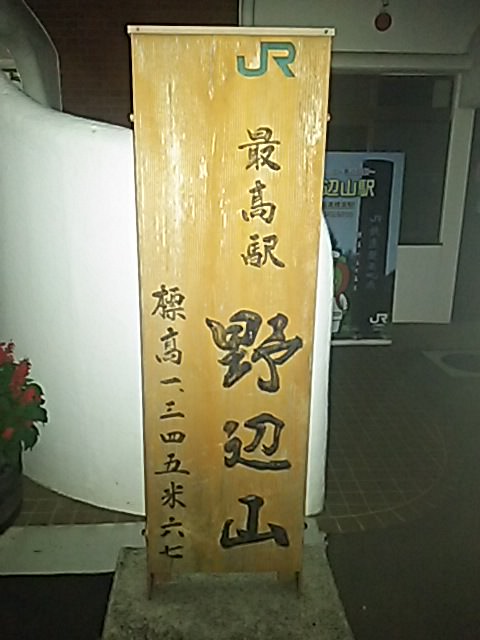 JR
最高駅
野辺山
標高一、三四五米六七
辺山駅
JR